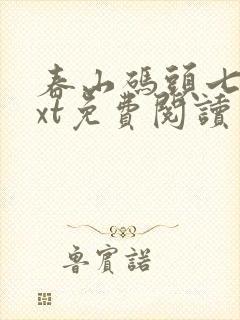 春山碼頭七
xt免費閱讀
魯賓諾